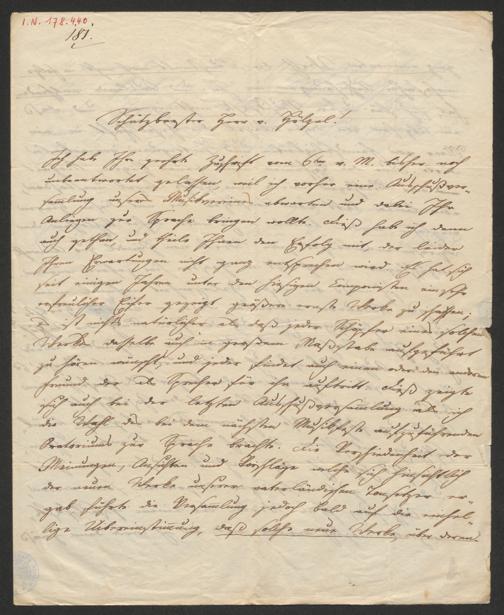 I.N. 178.440.
181.
Schätzbarster Herr v. Hölzel!
Ich habe Ihre geehrte Zuschrift vom 6ten v. M. bisher noch
unbeantwortet gelassen, weil ich vorher eine Ausschußver-
samlung unsers Musikvereins abwarten und dabei Ihr
Anliegen zur Sprache bringen wollte. Dieß hab ich denn
auch gethan und theile Ihnen den Erfolg mit, der leider
Ihren Erwartungen nicht ganz entsprechen wird. Es hat sich
seit einigen Jahren unter den hiesigen Componisten ein sehr
erfreulicher Eifer gezeigt größere ernste Werke zu schaffen;
es ist nichts natürlicher als daß jeder Schöpfer eines solchen
Werkes dasselbe auch in großem Maßstabe aufgeführt
zu hören wünscht, und jeder findet auch einen oder den andern
Freund der als Sprecher für ihn auftritt. Dieß zeigte
sich auch bei der letzten Ausschußversamlung als ich
die Wahl des bei dem nächsten Musikfeste aufzuführenden
Oratoriums zur Sprache brachte. Die Verschiedenheit der
Meinungen, Ansichten und Vorschläge welche sich hinsichtlich
der neuen Werke unserer vaterländischen Tonsetzer er-
gab führte die Versamlung jedoch bald auf die einhel-
lige Uebereinstimmung, daß solche neue Werke, über deren